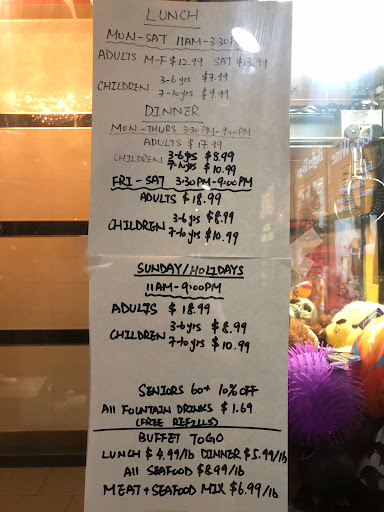 LUNCH
MON-SAT 11AM-3:30PM
ADULTS M-F $12.99 SAT $13.99
CHILDREN 3-6yrs $7.99
7-10yrs $9.99
DINNER
MON-THURS 3:30PM-9:00PM
ADULTS $17.99
CHILDREN 3-6yrs $8.99
7-10yrs $10.99
FRI-SAT 3:30PM-9:00PM
ADULTS $18.99
CHILDREN 3-6yrs $8.99
7-10yrs $10.99
SUNDAY/HOLIDAYS
11AM-9:00PM
ADULTS $18.99
CHILDREN 3-6yrs $8.99
7-10yrs $10.99
SENIORS 60+ 10% OFF
All FOUNTAIN DRINKS $1.69
(FREE REFILLS)
BUFFET TOGO
LUNCH $4.99/lb DINNER $5.99/lb
All SEAFOOD $8.99/lb
MEAT+SEAFOOD MIX $6.99/lb